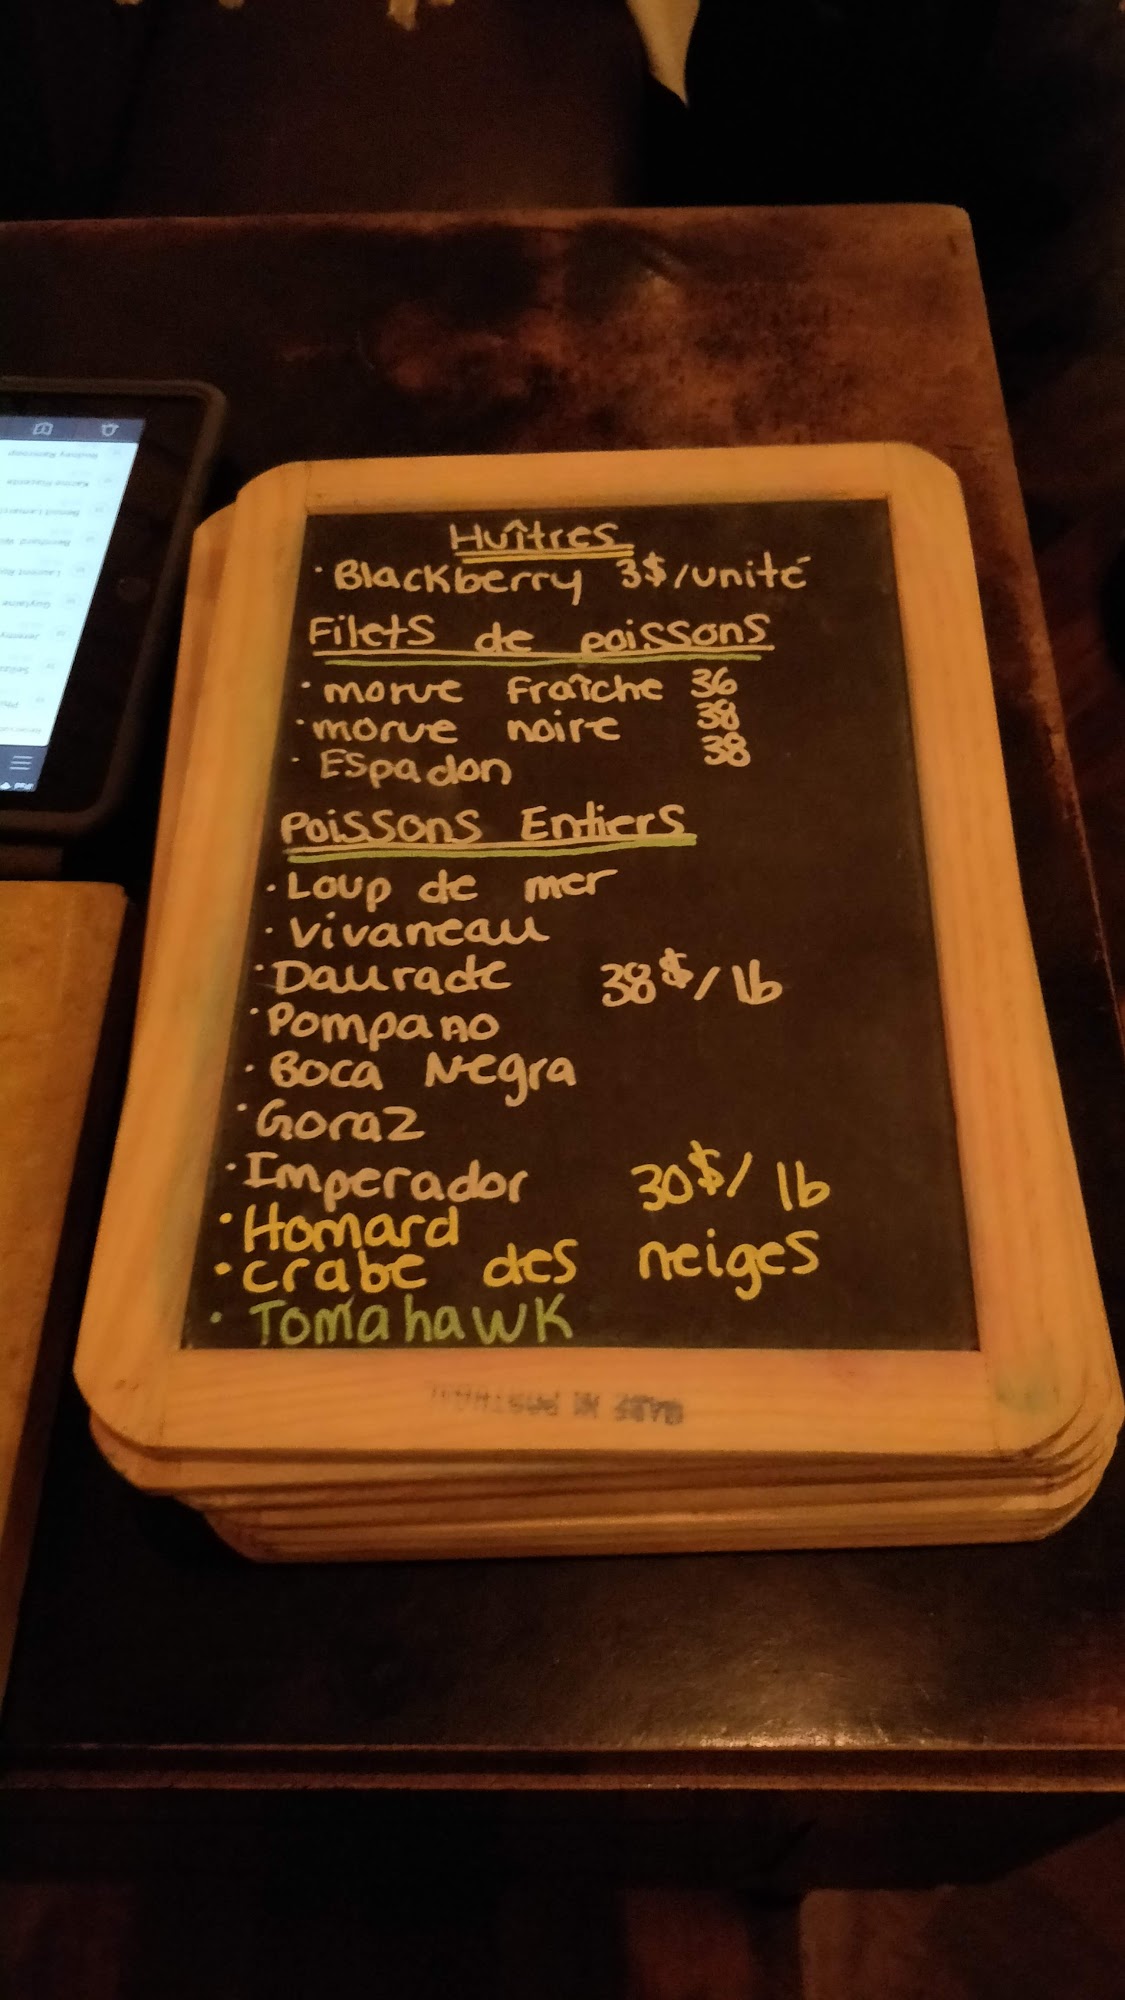 Huîtres
· Blackberry 3$/unité
Filets de poissons
· morue fraîche 36
· morue noire 38
· Espadon 38
Poissons Entiers
· Loup de mer
· Vivaneau
· Daurade 38$/lb
· Pompano
· Boca Negra
· Goraz
· Imperador 30$/lb
· Homard
· crabe des neiges
· Tomahawk
MADE IN PORTUGAL